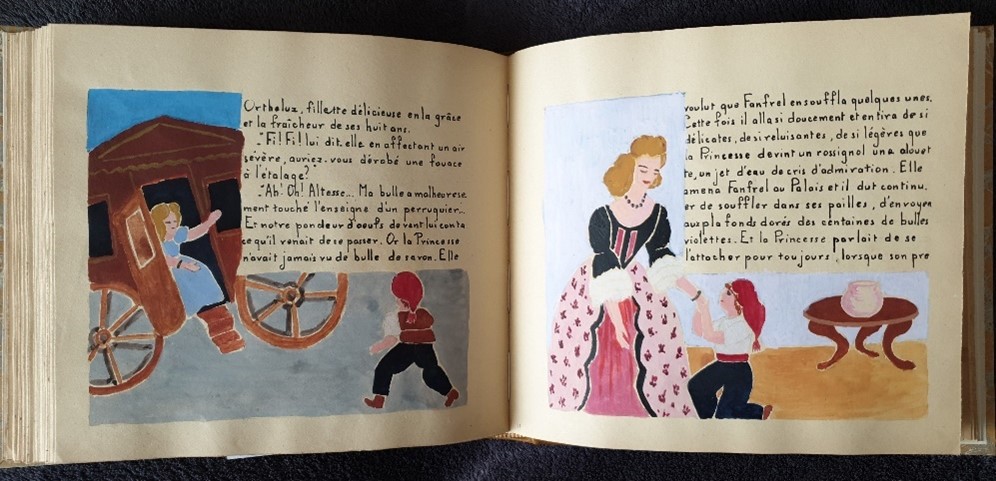 Ortholuz, fillette délicieuse en la grâce
et la fraîcheur de ses huit ans.
"Fi! Fi! lui dit-elle en affectant un air
sévère, auriez-vous dérobé une fouace
à l'étalage?
"Ah! Oh! Altesse... Ma bulle a malheureuse
ment touché l'enseigne d'un perruquier...
Et notre pondeur d'oeufs de vent lui conta
ce qu'il venait de se passer. Or la Princesse
n'avait jamais vu de bulle de savon. Elle
voulut que Fanfrel en souffla quelques unes.
Cette fois il alla si doucement et en tira de si
délicates, de si reluisantes, de si légères que
la Princesse devint un rossignol une alouet
te, un jet d'eau de cris d'admiration. Elle
amena Fanfrel au Palais et il dut continu.
er de souffler dans ses pailles, d'envoyer
aux plafonds dorés des centaines de bulles
violettes. Et la Princesse parlait de se
l'attacher pour toujours, lorsque son pre